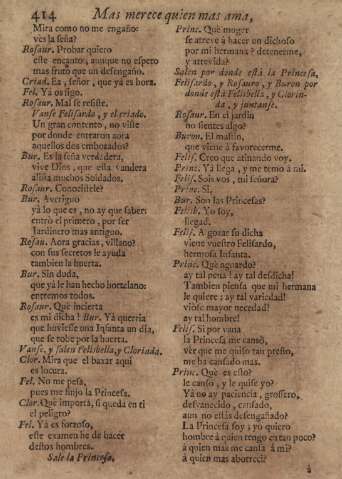 414 Mas merece quien mas ama,
Mira como no me engaño:
ves la seña?
Rosaur. Probar quiero
este encanto, aunque no espero
mas fruto que un desengaño.
Criad. Ea, señor, que yá es hora.
Fel. Yá os sigo.
Rosaur. Mal se resiste.
Vanse Felisardo, y el criado.
Un gran contento, no viste
por donde entraron aora
aquellos dos embozados?
Bur. Es la seña verdadera,
vive Dios, que esta vandera
alista muchos Soldados.
Rosaur. Conocistele?
Bur. Averiguo
yá lo que es, no ay que saber:
entró el primero, por ser
Jardinero mas antiguo.
Rosau. Aora gracias, villano?
con sus secretos le ayuda
tambien la huerta.
Bur. Sin duda,
que yá le han hecho hortelano:
entremos todos.
Rosaur. Què incierta
es mi dicha! Bur. Yá querria
que huviesse una Infanta un dia,
que se robe por la huerta.
Vanse, y salen Felisbella, y Cloriada.
Clor. Mira que el baxar aqui
es locura.
Fel. No me pesa,
pues me finjo la Princesa.
Clor. Què importa, si queda en ti
el peligro?
Fel. Yá es forzoso,
este examen he de hacer
destos hombres.
Sale la Princesa.
Princ. Què muger
se atreve à hacer un dichoso
por mi hermana? detenerme,
y atrevida?
Salen por donde está la Princesa,
Felisardo, y Rosauro, y Buron por
donde está Felisbella, y Clorin-
da, y juntanse.
Rosaur. En el jardin
no sientes algo?
Buron. El mastin,
que viene à favorecerme.
Felis. Creo que atinando voy.
Princ. Yá llega, y me temo à mi.
Felis. Sois vos, mi señora?
Princ. Si.
Bur. Son las Princesas?
Felisb. Yo soy,
llegad.
Felis. A gozar su dicha
viene vuestro Felisardo,
hermosa Infanta.
Princ. Què aguardo?
ay tal pena! ay tal desdicha!
Tambien piensa que mi hermana
le quiere; ay tal variedad!
viòse mayor necedad?
ay tal hombre!
Felis. Si por vana
la Princesa me cansò,
ver que me quiso tan presto,
me ha cansado mas.
Princ. Què es esto?
le canso, y le quise yo?
Yá no ay paciencia, grossero,
desvanecido, cansado,
aun no estás desengañado?
La Princesa soy; yo quiero
hombre à quien tengo en tan poco?
à quien mas me cansa à mi?
à quien mas aborreci?
à